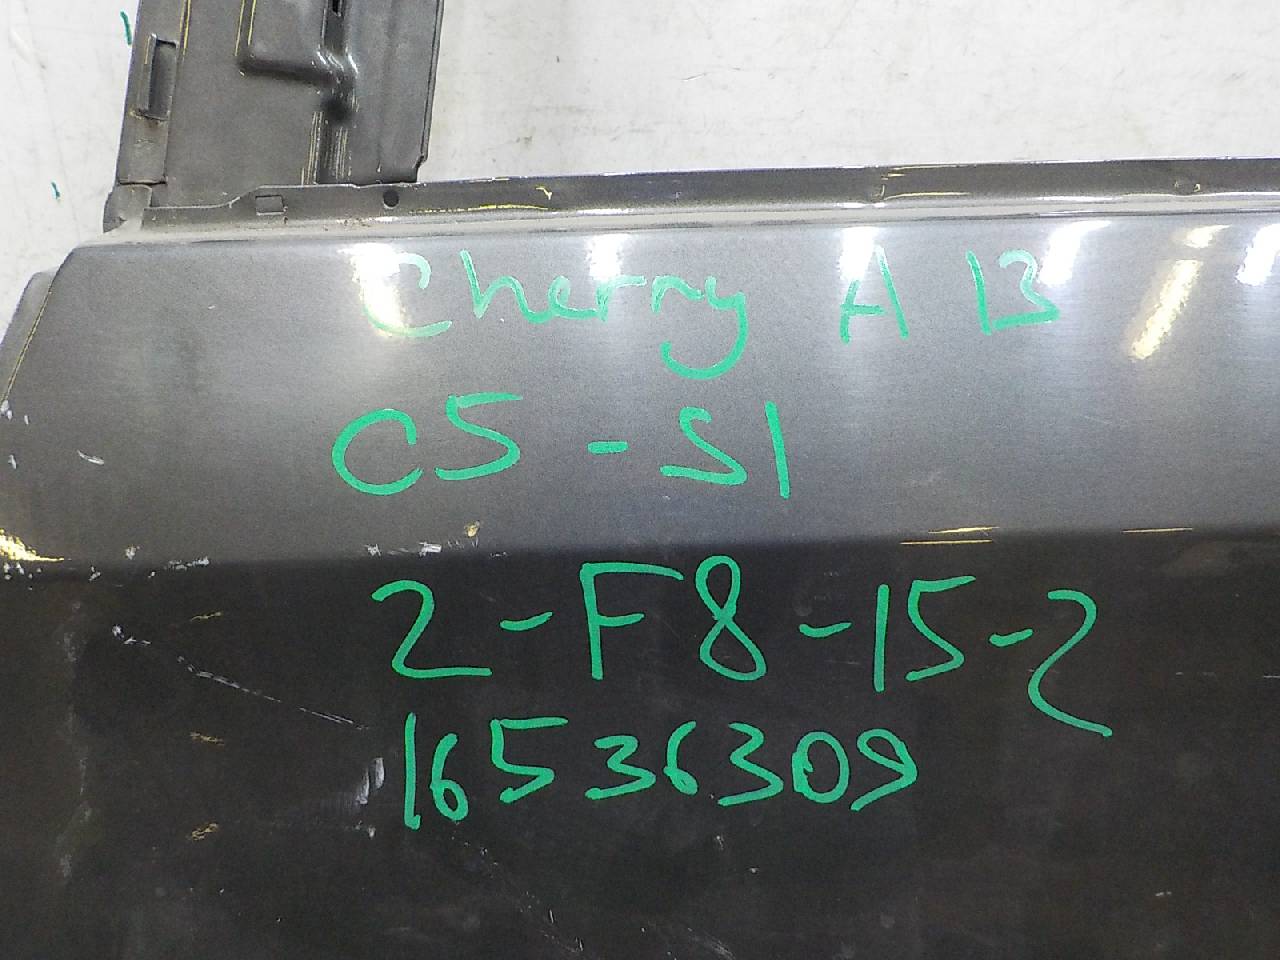 Cherry A 13
C5-S1
2-F8-15-2
16536309